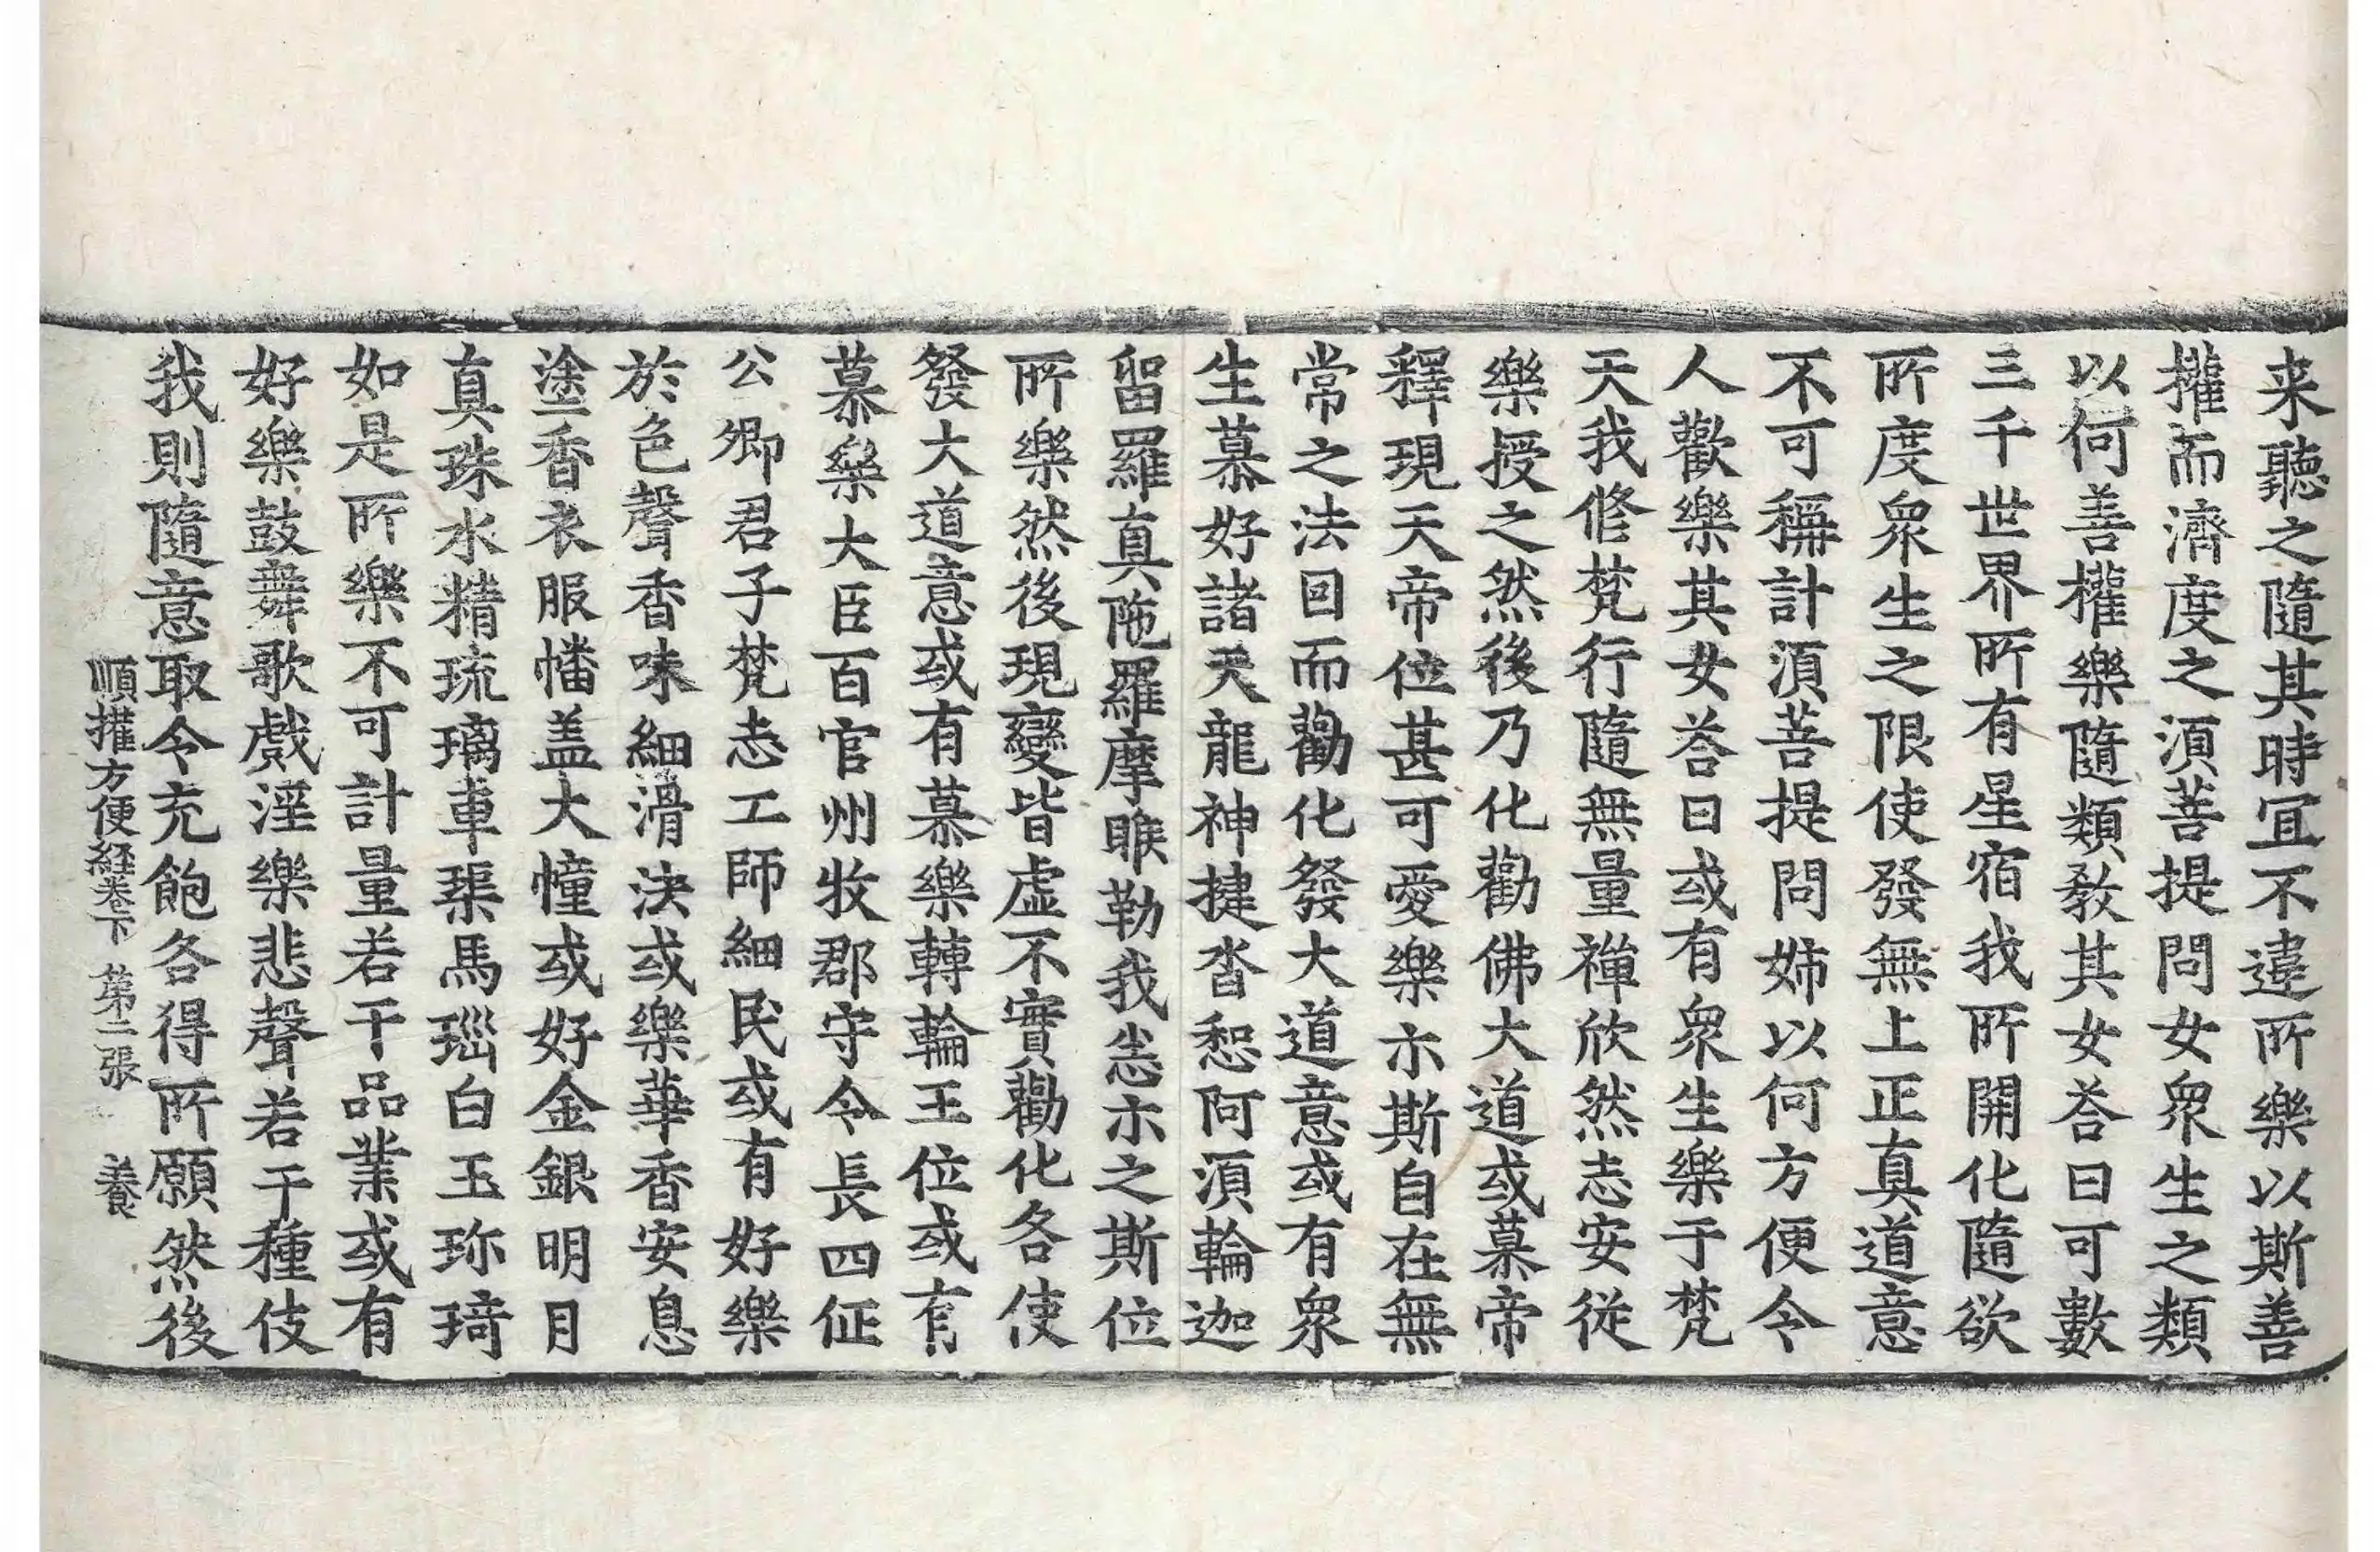 来聽之隨其時冝不違所樂以斯善
攉而濟度之湏菩提問女衆生之類
以何善權樂隨類教其女荅曰可數
三千世界所有星宿我所開化隨欲
所度衆生之限使發無上正真道意
不可稱計湏菩提問姉以何方便令
人歡樂其女荅曰或有衆生樂于梵
天我修梵行隨無量禪欣然志安従
樂授之然後乃化勸佛大道或慕帝
釋現天帝位甚可愛樂示斯自在無
常之法因而勸化發大道意或有衆
生慕好諸天龍神揵沓惒阿湏輪迦
留羅真陁羅摩睺勒我悉示之斯位
所樂然後現變皆虛不實勸化各使
發大道意或有慕樂轉輪王位或有
慕樂大臣百官州牧郡守令長四征
公卿君子梵志工師細民或有好樂
於色聲香味細滑決或樂華香安息
塗香衣服幡盖大幢或好金銀明月
真珠水精琉璃車𤦲馬瑙白玉珎琦
如是所樂不可計量若干品業或有
好樂鼓舞歌戲淫樂悲聲若干種伎
我則隨意取令充飽各得所願然後
順攉方便経卷下 第二張 養